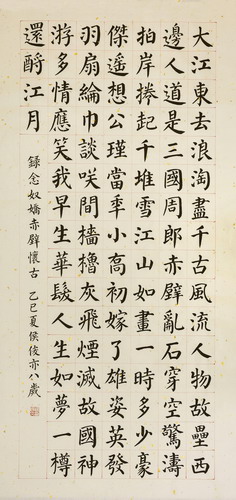 大江東去浪淘盡千古風流人物故壘西
邊人道是三國周郎赤壁亂石穿空驚濤
拍岸捲起千堆雪江山如畫一時多少豪
傑遙想公瑾當秊小喬初嫁了雄姿英發
羽扇綸巾談咲間檣櫓灰飛煙滅故國神
游多情應笑我早生華髮人生如夢一樽
還酹江月
錄念奴嬌赤壁懷古 乙巳夏侯俊亦八歲